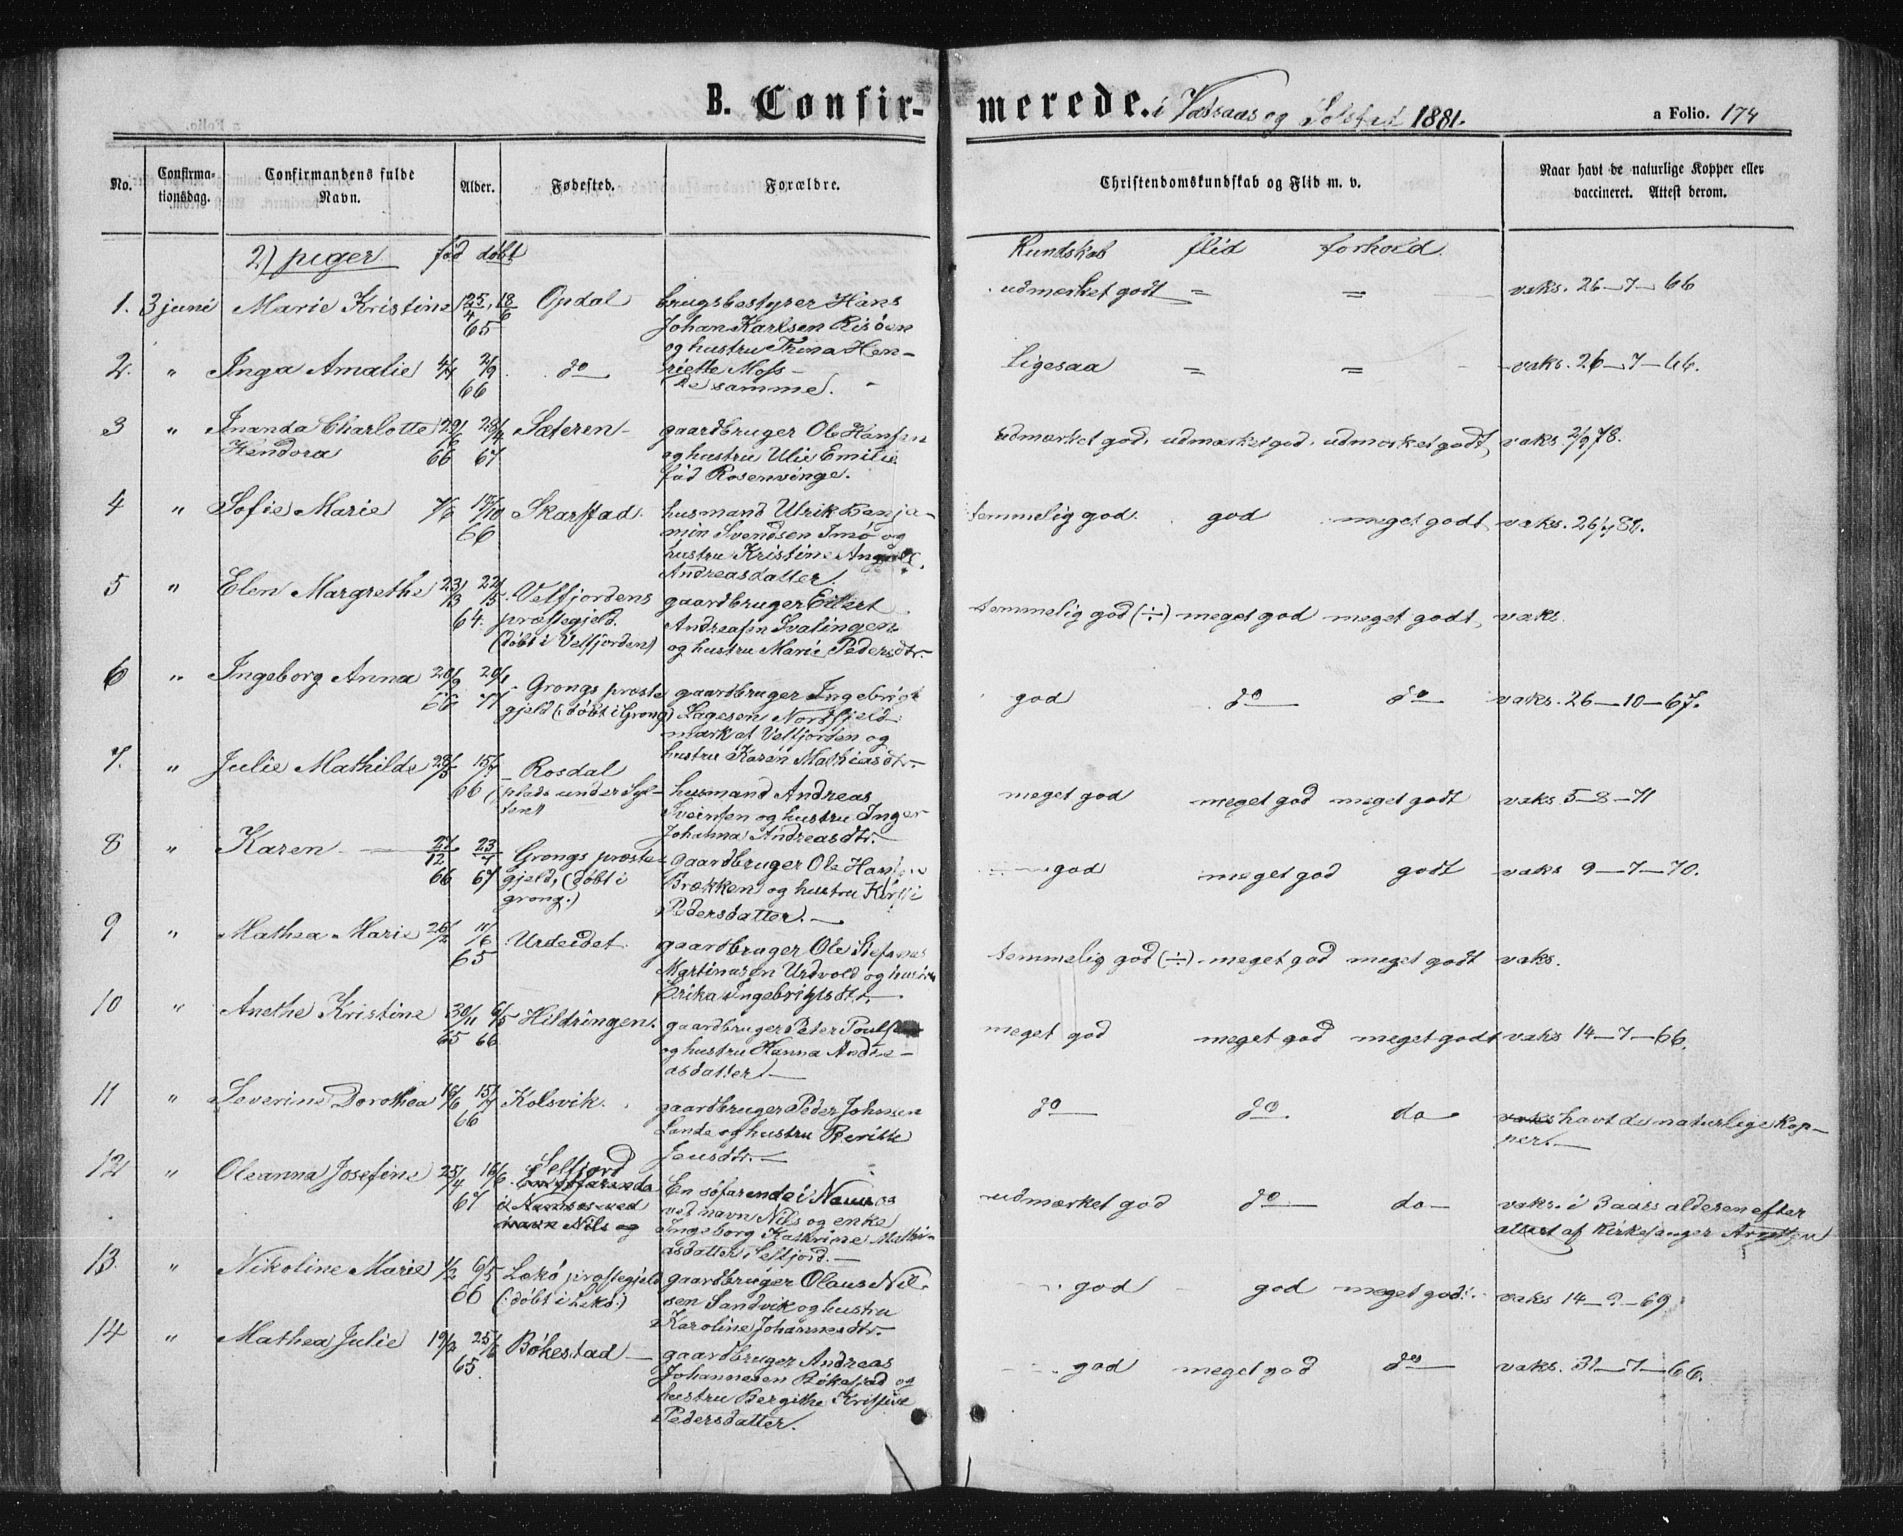 B. Confirmerede. i Vatsaas og Solstad 1881.
a Folio. 174
No.
Confirmationsdag.
Confirmandens fulde Navn.
Alder.
Fødested.
Forældre.
Christendomskundskab og Flid m. v.
Naar havt de naturlige Kopper eller vaccineret. Attest derom.
2) piger fød døbt
Kundskab flid forhold.
1. 3 juni Marie Kristine 25/4 18/6 65 Opdal
brugsbestyrer Hans
Johan Karlsen Risøen
og hustru Trina Hen-
riette Moss
udmerket godt = =
vaks. 26-7-66
2. " Inga Amalie 2/9 66 do
De samme.
ligesaa = =
vaks. 26-7-66.
3 " Inanda Charlotte Hendora 29/6 66 28/4 67 Sæteren
gaardbruger Ole Hansen
og hustru Ulie Emilie
fød Rosenvinge.
udmærket god. udmærket god. udmerket godt
vaks. 2/9 78.
4 " Sofie Marie 7/6 14/10 66 Skarstad.
husmand Ulrik Benja-
min Svendsen Imø og
hustru Kristine
Andreasdatter.
temmelig god. god meget godt
5 " Elen Margrethe 64. Velfjordens
præstegjeld.
(døbt i Velfjorden)
gaardbruger Eilert
Andreasen Svalingen
og hustru Marie Pedersdtr.
temmelig god (÷) meget god meget godt
vaks.
6 " Ingeborg Anna 66 Grongs præste
gjeld (: døbt i Grong)
gaardbruger Ingebrigt
Lagesen Nordfjeld-
mark at Velfjorden og
hustru Karen Mathiasdtr.
god do do
vaks. 26-10-67.
7. " Julie Mathilde 66 Rosdal
(plads under
husmand Andreas
Sveinsen og hustru Inger
Johanna Andreasdtr.
meget god meget god meget godt
vaks 5-8-71
8 " Karen 27/12 66 23/7 67 Grongs præste-
gjeld, (døbt i
grong.)
gaardbruger Ole Hansen
Brækken og hustru
Pedersdatter.
god meget god godt
vaks 9-7-70.
9 " Mathea Marie 26/2 11/6 65 Urdeidet.
gaardbruger Ole Stefanus
Martinusen Urdvold og hustru
Erika Ingebrigtsdtr.
temmelig god (÷) meget god meget godt
vaks.
10 " Anethe Kristine 30/11 65 6/5 66 Hildringen.
gaardbruger Peter Poulsen
og hustru Hanna Andre-
asdatter.
meget god meget god meget godt
vaks 14-7-66.
11 " Severine Dorothea 16/6 15/7 66 Kolsvik.
gaardbruger Peder Johnsen
Lande og hustru Berithe
Jensdtr.
do do do
vaks havt de naturlige kop-
per.
12 " Oleanna Josefine 25/4 16/6 67 Selfjord
En søfarende
i Namsos ved
navn Nils og
En søfarende i Namsos
ved navn Nils og enke
Ingeborg Katrine Mathi-
asdatter Selfjord.
udmærket god do do
vaks. i 3 aars alderen efter
attest af Kirkesanger Arntzen
13. " Nikoline Marie 1/2 6/5 66 Lekø præstegjeld
(: døbt i Lekø:)
gaardbruger Olaus Nil-
sen Sandvik og hustru
Karoline Johannesdtr.
god god meget god.
vaks 14-9-69
14 " Mathea Julie 19/2 25/6 65. Bøkestad
gaardbruger Andreas
Johannesen Bøkestad og
hustru Bergithe Kristine
Pedersdatter.
god meget god do
vaks. 31-7-66.